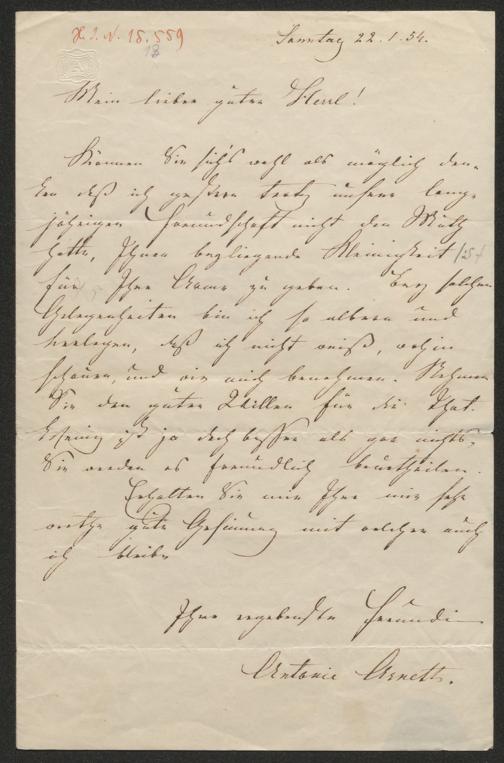 H. I. N. 18.559
18
Sonntag 22.1.54.
Mein lieber guter Herrl!
Können Sie sich's wohl als möglich den-
ken daß ich gestern trotz unserer lang-
jährigen Freundschaft nicht den Muth
hatte, Ihnen beyliegende Kleinigkeit
für Ihre Arme zu geben. Bey solchen
Gelegenheiten bin ich so albern und
verlegen, daß ich nicht weiß, wohin
schauen, und wie mich benehmen. Nehmen
Sie den guten Willen für die That.
Wenig ist ja doch besser als gar nichts,
Sie werden es freundlich beurtheilen.
Erhalten Sie mir Ihre mir sehr
werthe gute Gesinnung mit welcher auch
ich bleibe
Ihre ergebenste Freundin
Antonie Arneth.